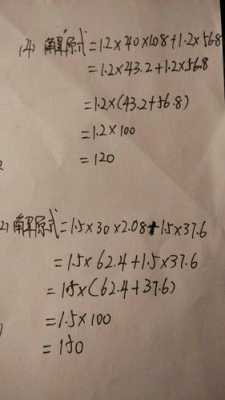 (4) 解原式=1.2×40×1.08+1.2×56.8
=1.2×43.2+1.2×56.8
=1.2×(43.2+56.8)
=1.2×100
=120
2) 解原式=1.5×30×2.08+1.5×37.6
=1.5×62.4+1.5×37.6
=1.5×(62.4+37.6)
=1.5×100
=150